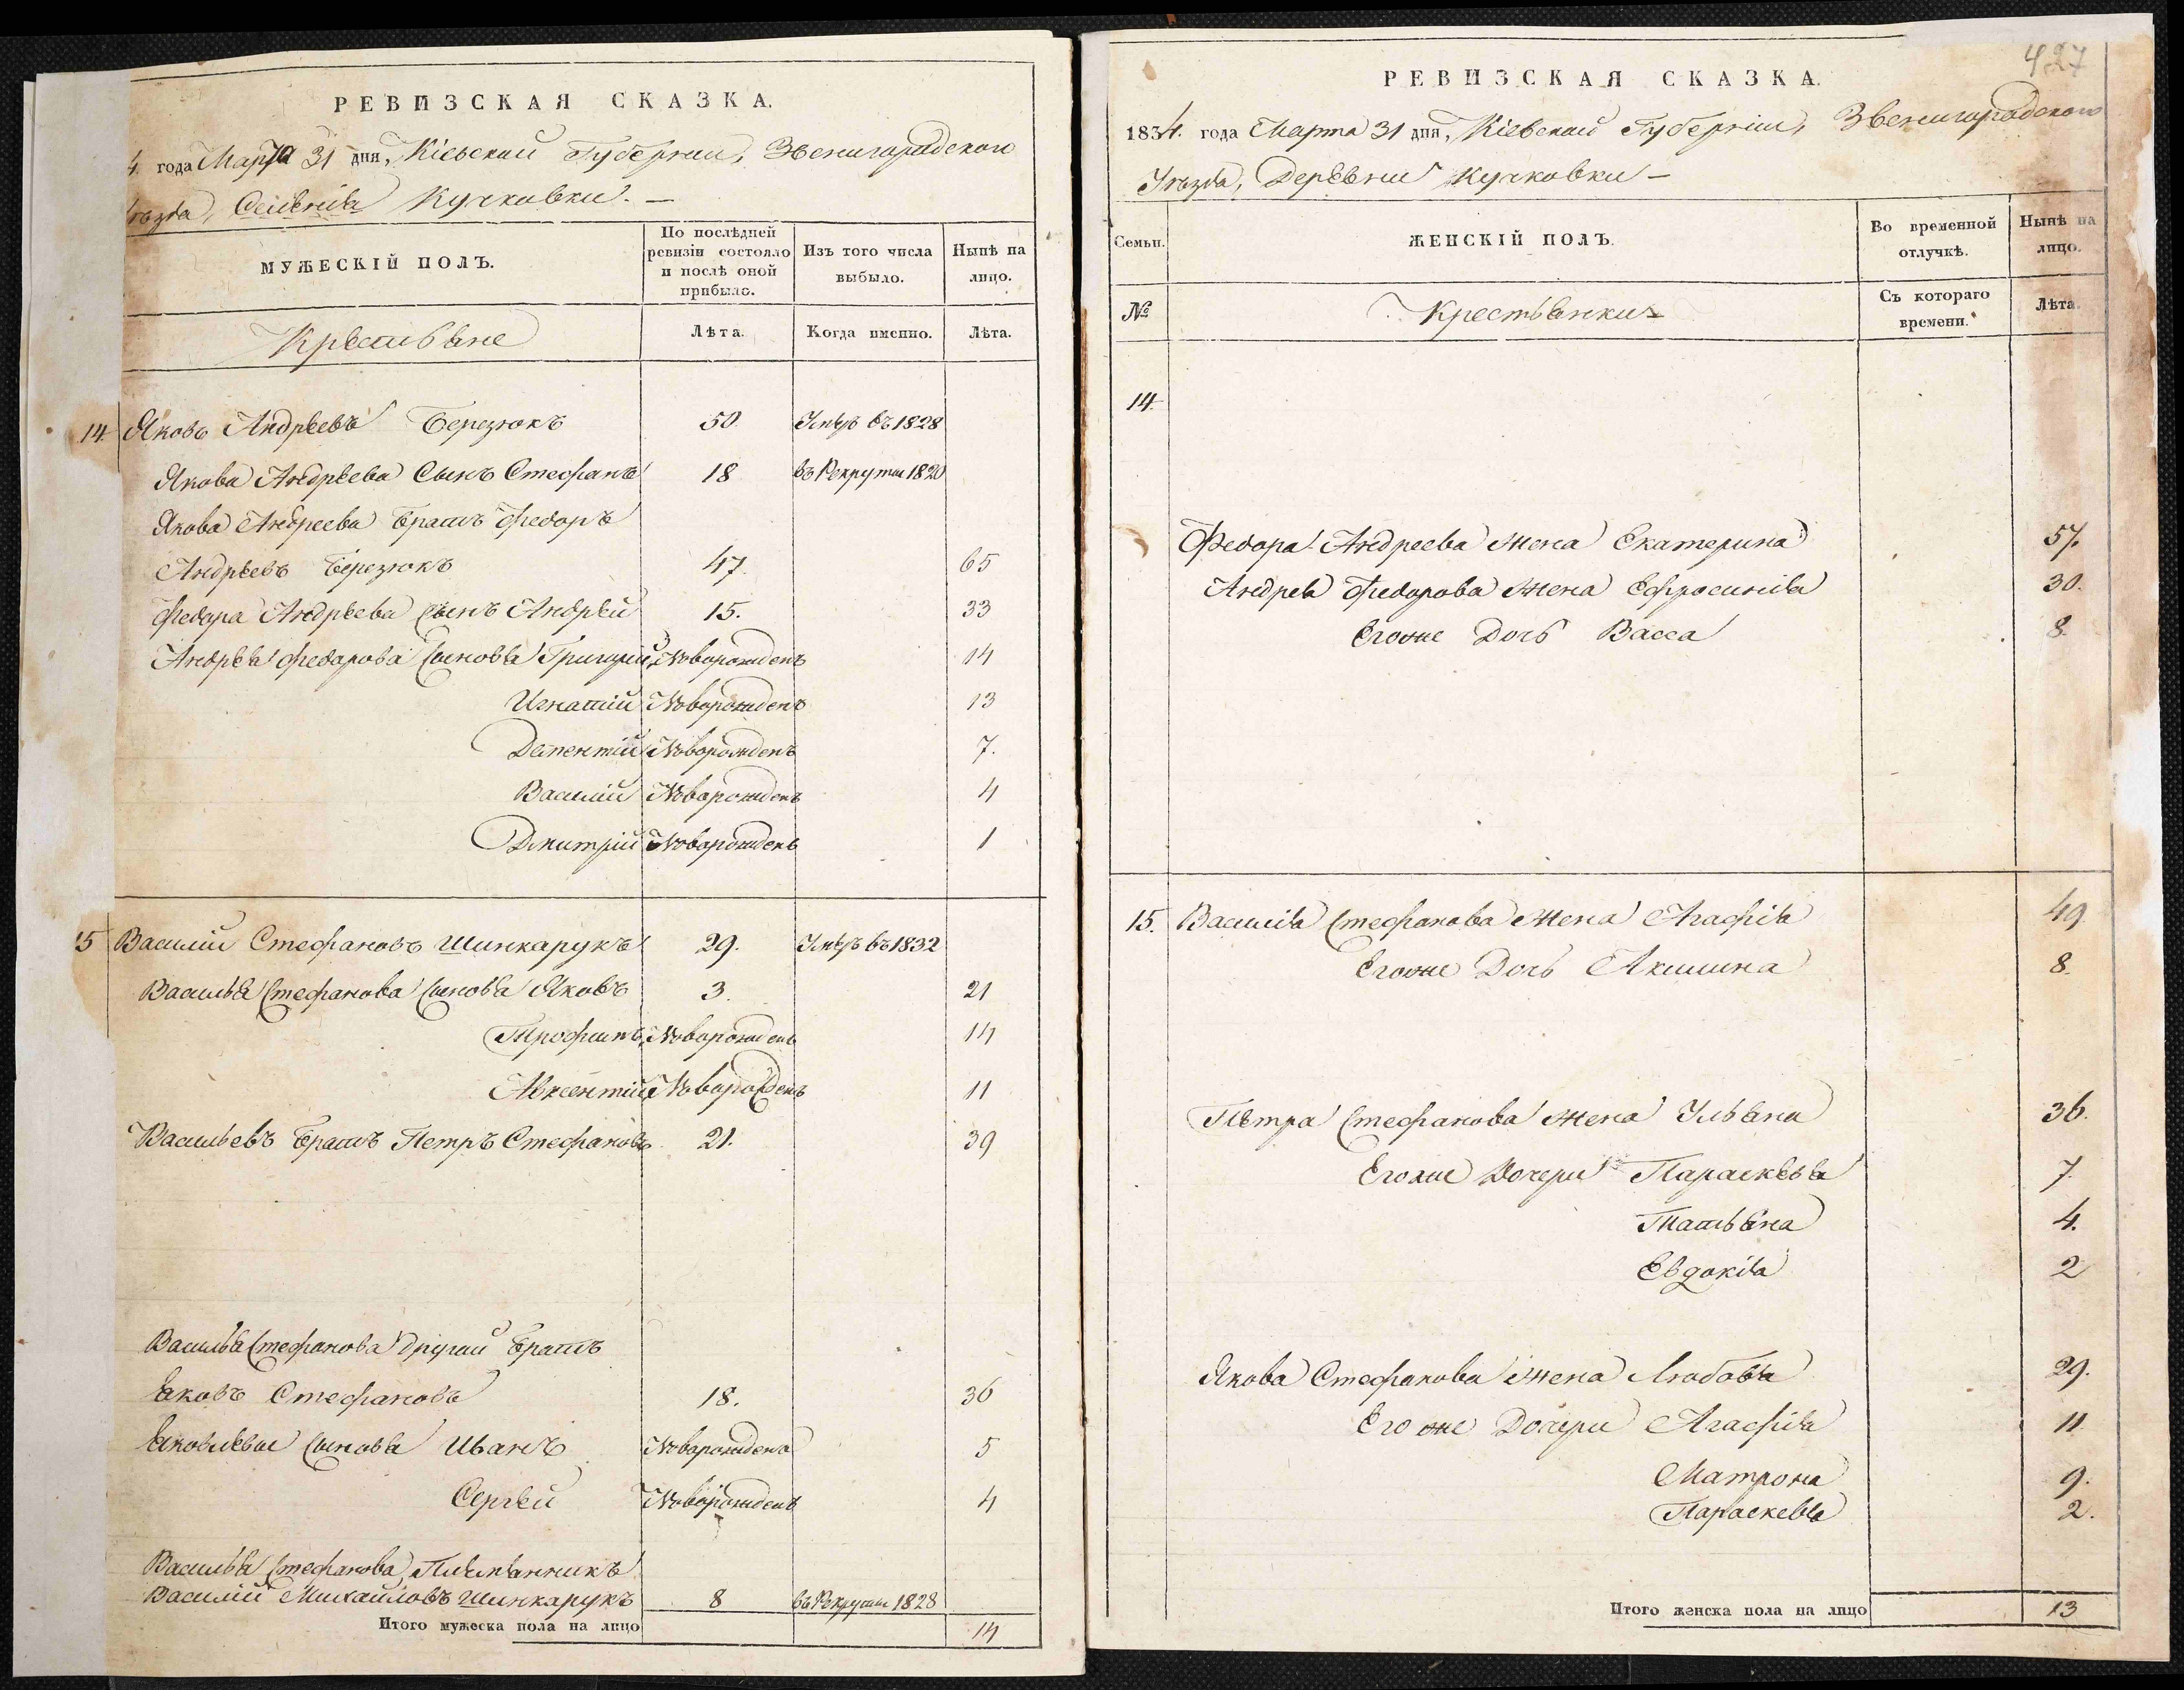 РЕВИЗСКАЯ СКАЗКА.
4. года Марта 31 дня, Кіевской Губерніи, Звенигородского
уѣзда, Селенія Кучковки. —
МУЖЕСКІЙ ПОЛЪ.
По послѣдней ревизіи состояло и послѣ оной прибыло.
Изъ того числа выбыло.
Нынѣ на лицо.
Крестьяне
Лѣта.
Когда именно.
Лѣта.
14 Яковъ Андреевъ Березюкъ 50 Умеръ въ 1828
Якова Андреева Сынъ Стефанъ 18 въ Рекруты 1820
Якова Андреева братъ Федоръ
Андреевъ Березюкъ 47. 65
Федора Андреева сынъ Андрей 15. 33
Андрея Федорова сыновья Григорий Новорожденъ 14
Игнатій Новорожденъ 13
Новорожденъ 7.
Василій Новорожденъ 4
Дмитрій Новорожденъ 1
15 Василій Стефановъ Шинкарукъ 29. Умеръ въ 1832
Василья Стефанова сыновья Яковъ 3. 21
Трофимъ Новорожденъ 14
Авксентій Новорожденъ 11
Васильевъ братъ Петръ Стефановъ 21. 39
Василья Стефанова другой братъ
Яковъ Стефановъ 18. 36
Яковлевы сыновья Иванъ Новорожденъ 5
Сергѣй Новорожденъ 4
Василья Стефанова Племянникъ
Василій Михайловъ Шинкарукъ 8 въ Рекруты 1828
Итого мужеска пола на лицо 14
427
РЕВИЗСКАЯ СКАЗКА.
1834. года Марта 31 дня, Кіевской Губерніи, Звенигородского
Уѣзда, Деревни Кучковки —
Семьи.
ЖЕНСКІЙ ПОЛЪ.
Во временной отлучкѣ.
Нынѣ на лицо.
№
Крестьянки
Съ котораго времени.
Лѣта.
14.
Федора Андреева жена Екатерина 57.
Андрея Федорова жена Ефросинія 30.
Егоже Дочь Васса 8.
15. Василія Стефанова жена Агафія 49
Егоже Дочь Акилина 8.
Петра Стефанова жена Ульяна 36.
Егоже Дочери Параскевья 7.
Татьяна 4.
Евдокія 2
Якова Стефанова жена Любовья 29.
Его же Дочери Агафія 11
Матрона 9.
Параскевья 2.
Итого женска пола на лицо 13